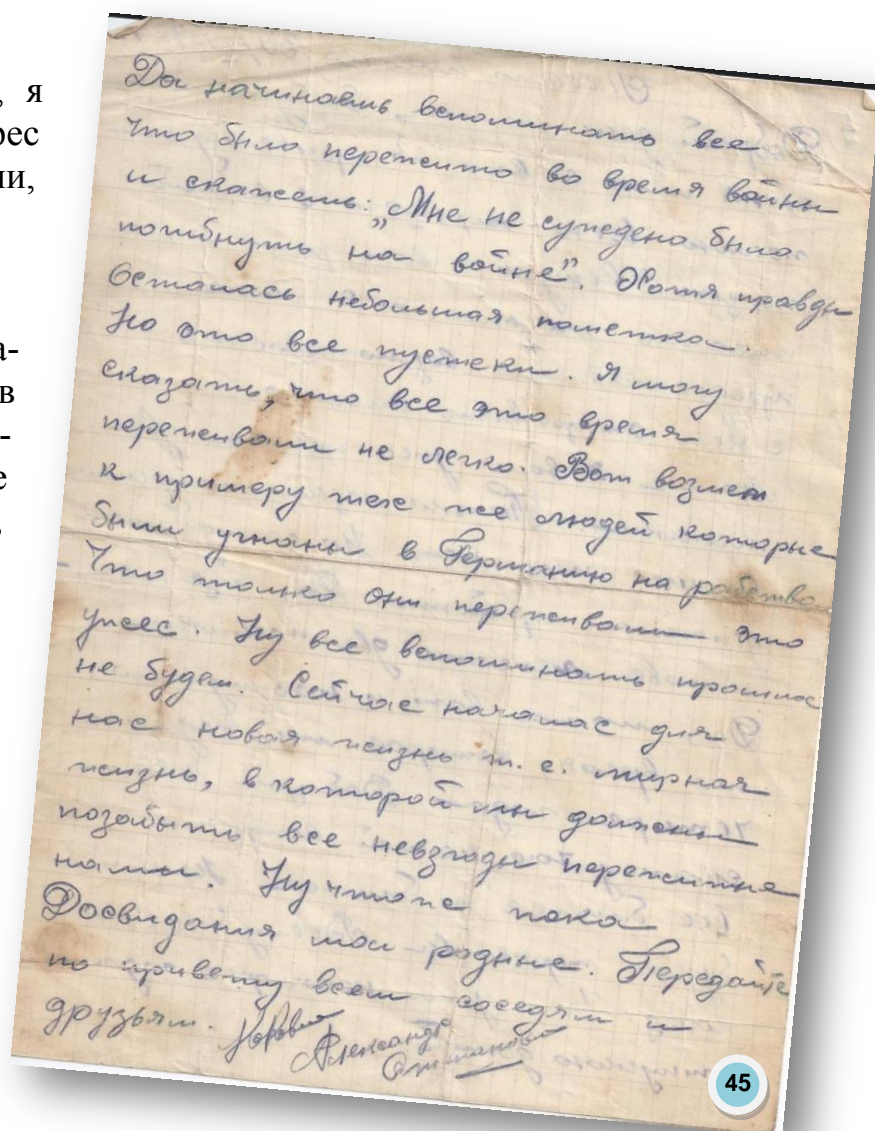 , я
рес
ии,
а-
в
-
е
,
Да начинаешь вспоминать все
что было пережито во время войны
и скажешь: „Мне не суждено было
погибнуть на войне”. Хотя правды
Осталась небольшая пометка.
Но это все пустяки. Я могу
сказать, что все это время
переживали не легко. Вот возмем
к примеру тех же людей которые
были угнаны в Германию на рабство.
Что только они переживали это
ужес. Ну все вспоминать прошлое
не будем. Сейчас началас для
нас новая жизнь т. е. мирная
жизнь, в которой мы должны
позабыть все невзгоды пережитые
нами. Ну чтоже пока
Досвидания мои родные. Передайте
по привету всем соседям и
друзьям.
Александр
45